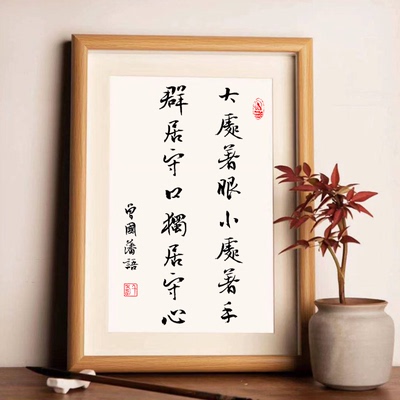 大處著眼小處著手
群居守口獨居守心
曾國藩語